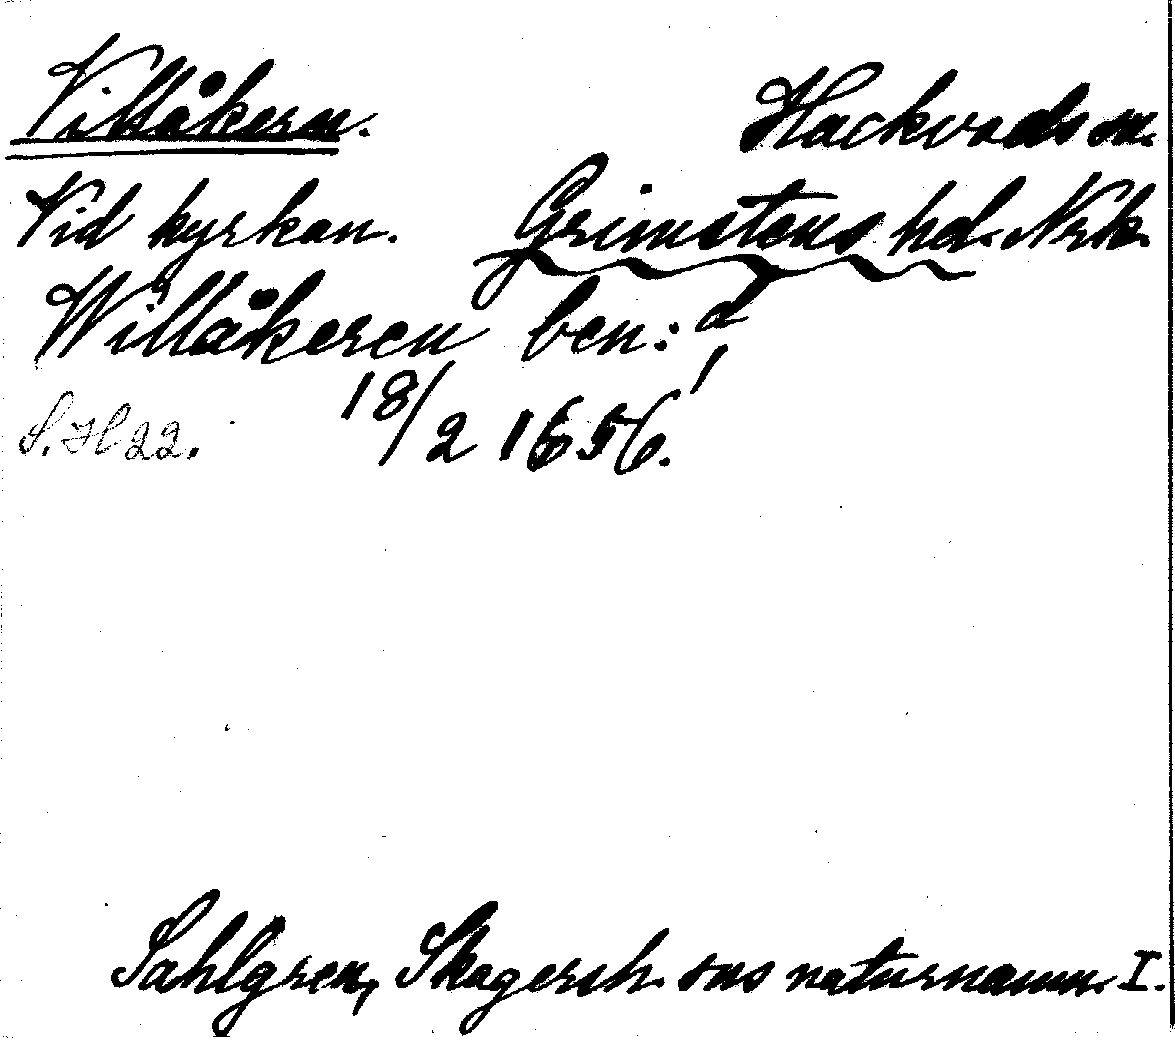 Villåkern. Hackvads sn.
Vid kyrkan. Grimstens hd. Nrk.
Willåkeren ben: d
18/2 1656.
S. H 22.
Sahlgren, Skagersh. sns naturnamn. I.